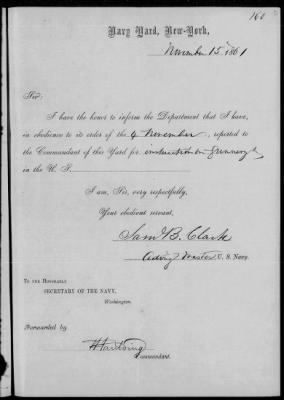 160
Navy Yard, New-York,
November 15th 1861
Sir:
I have the honor to inform the Department that I have,
in obedience to its order of the 4 November, reported to
the Commandant of this Yard for instruction in Gunnery
in the U. S.
I am, Sir, very respectfully,
Your obedient servant,
Saml B. Clark
Acting Master U. S. Navy.
To the Honorable
SECRETARY OF THE NAVY,
Washington.
Forwarded by
Commandant.